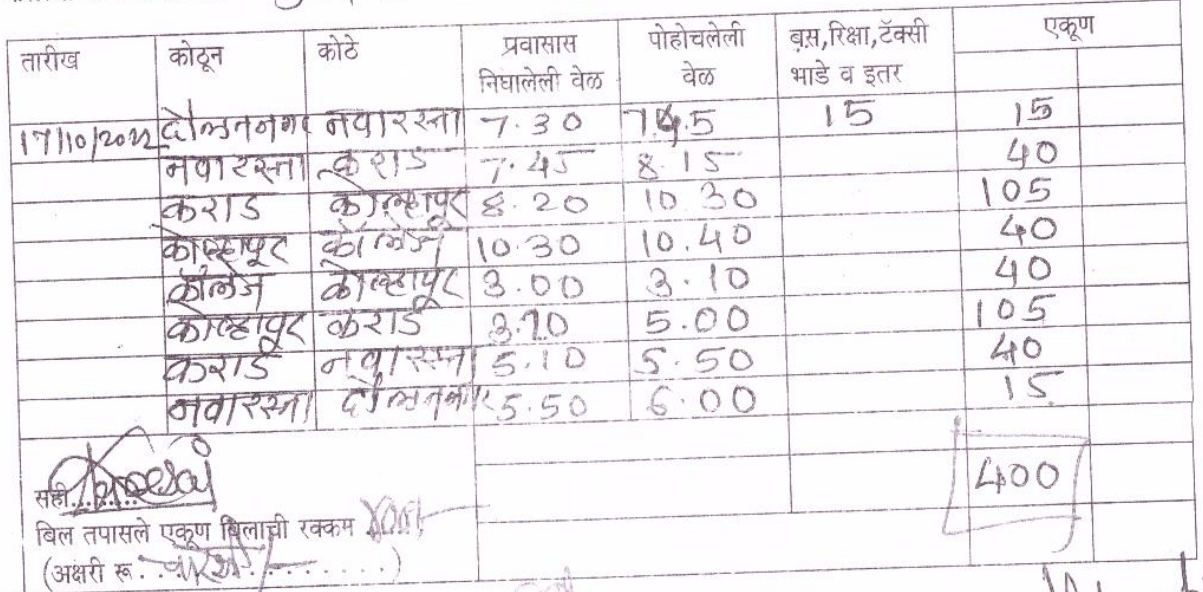 तारीख कोठून कोठे प्रवासास निघालेली वेळ पोहोचलेली वेळ बस,रिक्षा,टॅक्सी भाडे व इतर एकूण
17/10/2022 दौलतनगर नवारस्ता 7.30 7.45 15 15
नवारस्ता कराड 7.45 8.15 40
कराड कोल्हापूर 8.20 10.30 105
कोल्हापूर कॉलेज 10.30 10.40 40
कॉलेज कोल्हापूर 3.00 3.10 40
कोल्हापूर कराड 3.10 5.00 105
कराड नवारस्ता 5.10 5.50 40
नवारस्ता दौलतनगर 5.50 6.00 15
400
सही.........
बिल तपासले एकूण बिलाची रक्कम 400/-
(अक्षरी रू. . चारशे/- . . . . . . .)